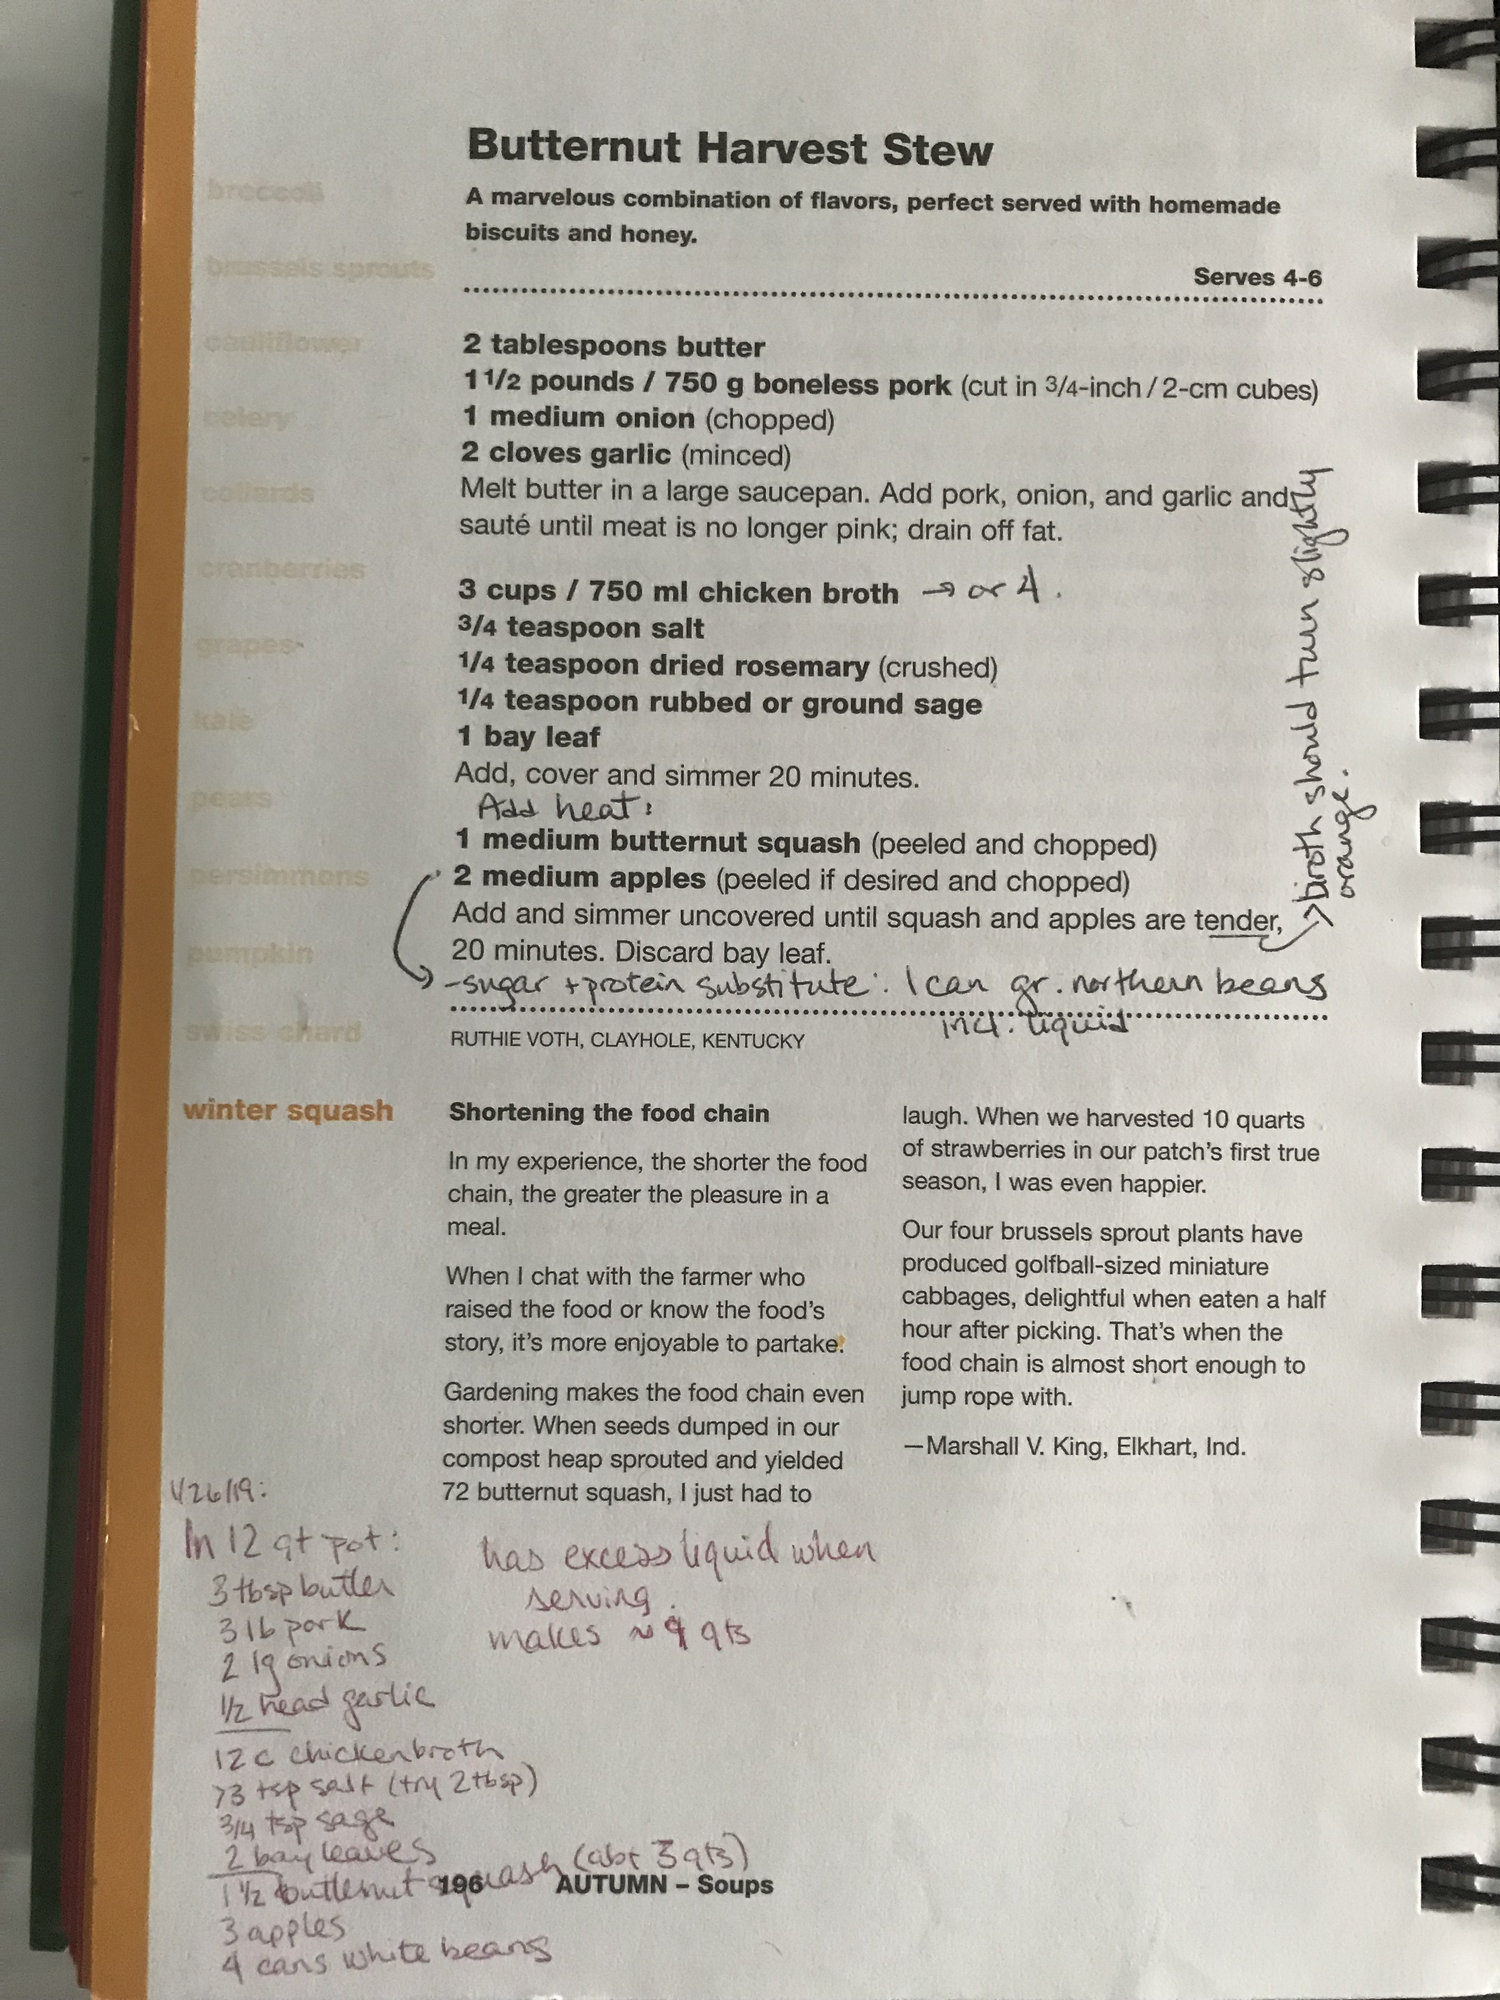 Butternut Harvest Stew
A marvelous combination of flavors, perfect served with homemade
biscuits and honey.
Serves 4-6
2 tablespoons butter
1 1/2 pounds / 750 g boneless pork (cut in 3/4-inch / 2-cm cubes)
1 medium onion (chopped)
2 cloves garlic (minced)
Melt butter in a large saucepan. Add pork, onion, and garlic and
sauté until meat is no longer pink; drain off fat.
3 cups / 750 ml chicken broth → or 4.
3/4 teaspoon salt
1/4 teaspoon dried rosemary (crushed)
1/4 teaspoon rubbed or ground sage
1 bay leaf
Add, cover and simmer 20 minutes.
Add heat:
1 medium butternut squash (peeled and chopped)
2 medium apples (peeled if desired and chopped)
Add and simmer uncovered until squash and apples are tender,
20 minutes. Discard bay leaf.
→ broth should turn slightly
orange.
- sugar + protein substitute: 1 can gr. northern beans
incl. liquid
RUTHIE VOTH, CLAYHOLE, KENTUCKY
broccoli
brussels sprouts
cauliflower
celery
collards
cranberries
grapes
kale
pears
persimmons
pumpkin
swiss chard
winter squash
Shortening the food chain
In my experience, the shorter the food
chain, the greater the pleasure in a
meal.
When I chat with the farmer who
raised the food or know the food's
story, it's more enjoyable to partake.
Gardening makes the food chain even
shorter. When seeds dumped in our
compost heap sprouted and yielded
72 butternut squash, I just had to
laugh. When we harvested 10 quarts
of strawberries in our patch's first true
season, I was even happier.
Our four brussels sprout plants have
produced golfball-sized miniature
cabbages, delightful when eaten a half
hour after picking. That's when the
food chain is almost short enough to
jump rope with.
—Marshall V. King, Elkhart, Ind.
1/26/19:
In 12 qt pot:
3 tbsp butter
3 lb pork
2 lg onions
1/2 head garlic
12 c chicken broth
>3 tsp salt (try 2 tbsp)
3/4 tsp sage
2 bay leaves
1 1/2 butternut squash (abt 3 qts)
3 apples
4 cans white beans
has excess liquid when
serving.
makes ~ 9 qts
196 AUTUMN – Soups